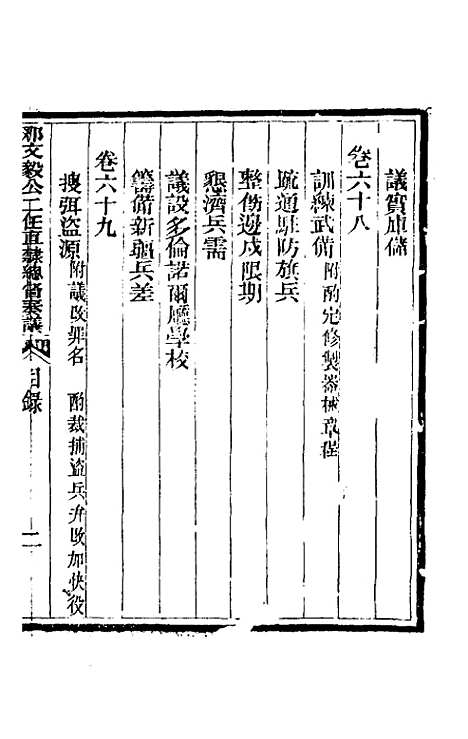 議實庫儲
卷六十八
訓練武備 附酌定修製器械章程
疏通駐防旗兵
整飭邊戍限期
懇濟兵需
議設多倫諾爾廳學校
籌備新疆兵差
卷六十九
搜弭盜源 附議改罪名 酌裁捕盜兵弁改加快役
那文毅公二任直隸總督奏議 目錄 二